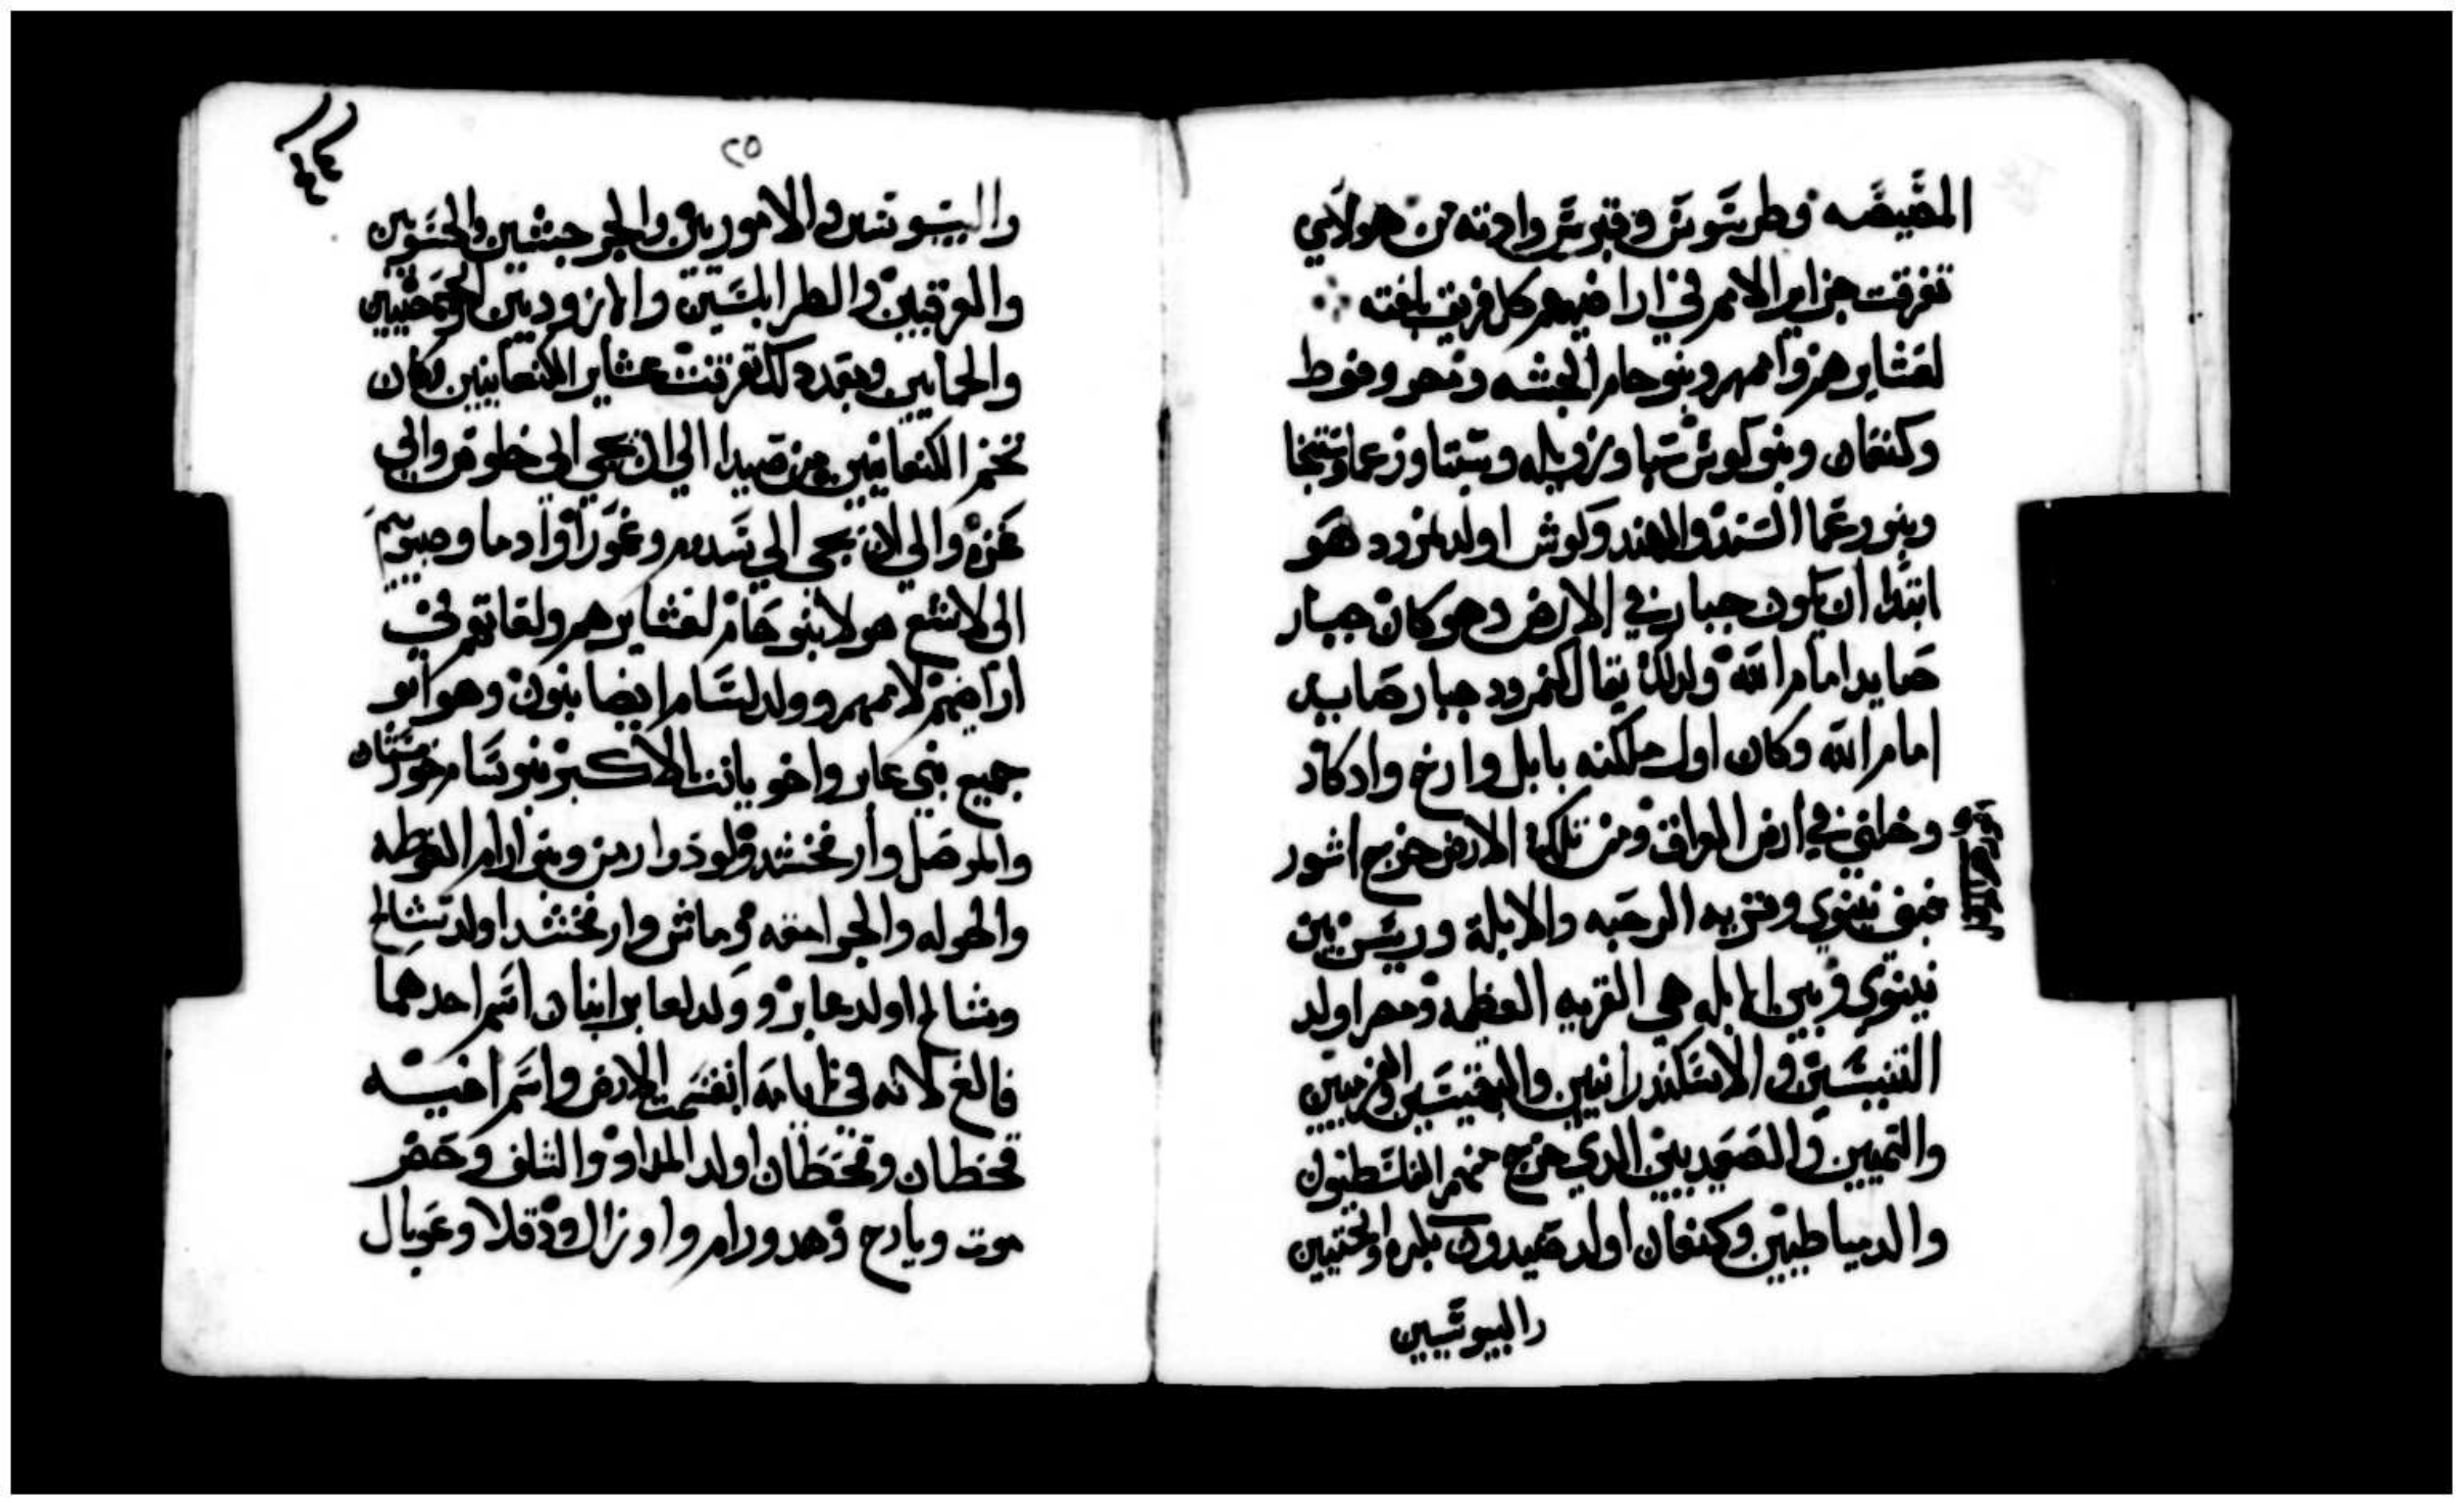 المصيصه وطرسوس وقبرس وادنه من هولاي
تفرقت جزاير الامم في اراضيهم كل فريق بلغته
لعشايرهم واممهم وبنو حام الحبشه ومصر وفوط
وكنعان وبنو كوش سبا وزويله وسبتا ورعما وسبتخا
وبنو رعما السند والهند وكوش اولد نمرود هو
ابتدا ان يكون جبار في الارض وهو كان جبار
صايد امام الله ولدلك يقال كنمرود جبار صايد
امام الله وكان اول مملكته بابل وارخ واركاد
وخلني في ارض العراق ومن تلك الارض خرج اشور
فبنى نينوي وقريه الرحبه والابلة وريسن بين
نينوى وبين الابله هي القريه العظيمه ومصر اولد
التنيسيين والاسكندرانيين والبهنسيين والفرميين
والصعيديين الدي خرج منهم الفلسطنيون
والدمياطيين وكنعان اولد صيدون بكره والحتيين
والبيوسيين
٢٥
واليبوسيين والاموريين والجرجشيين والحويين
والعرقيين والطرابلسيين والازوديين والحمصيين
والحمايين وبعد دلك تفرقت عشاير الكنعانيين وكان
تخم الكنعانيين من صيدا الي ان تجي الى خلوص والى
غزه والي ان تجي الي سدوم وغمورا وادما وصبويم
الى لاشع هولا بنو حام لعشايرهم ولغاتهم في
اراضيهم لاممهم وولد لسام ايضا بنون وهو ابو
جميع بني عابر واخو يافت الاكبر بنو سام خورستان
والموصل وارفخشد ولود وارمن وبنو ارام الغوطه
والحوله والجرامقه وماش وارفخشد اولد شالح
وشالح اولد عابر وولد لعابر ابنان اسم احدهما
فالغ لانه في ايامه انقسمت الارض واسم اخيه
قحطان وقحطان اولد المداود والشلف وحضر
موت ويارح وهدورام واوزال ودقلا وعوبال